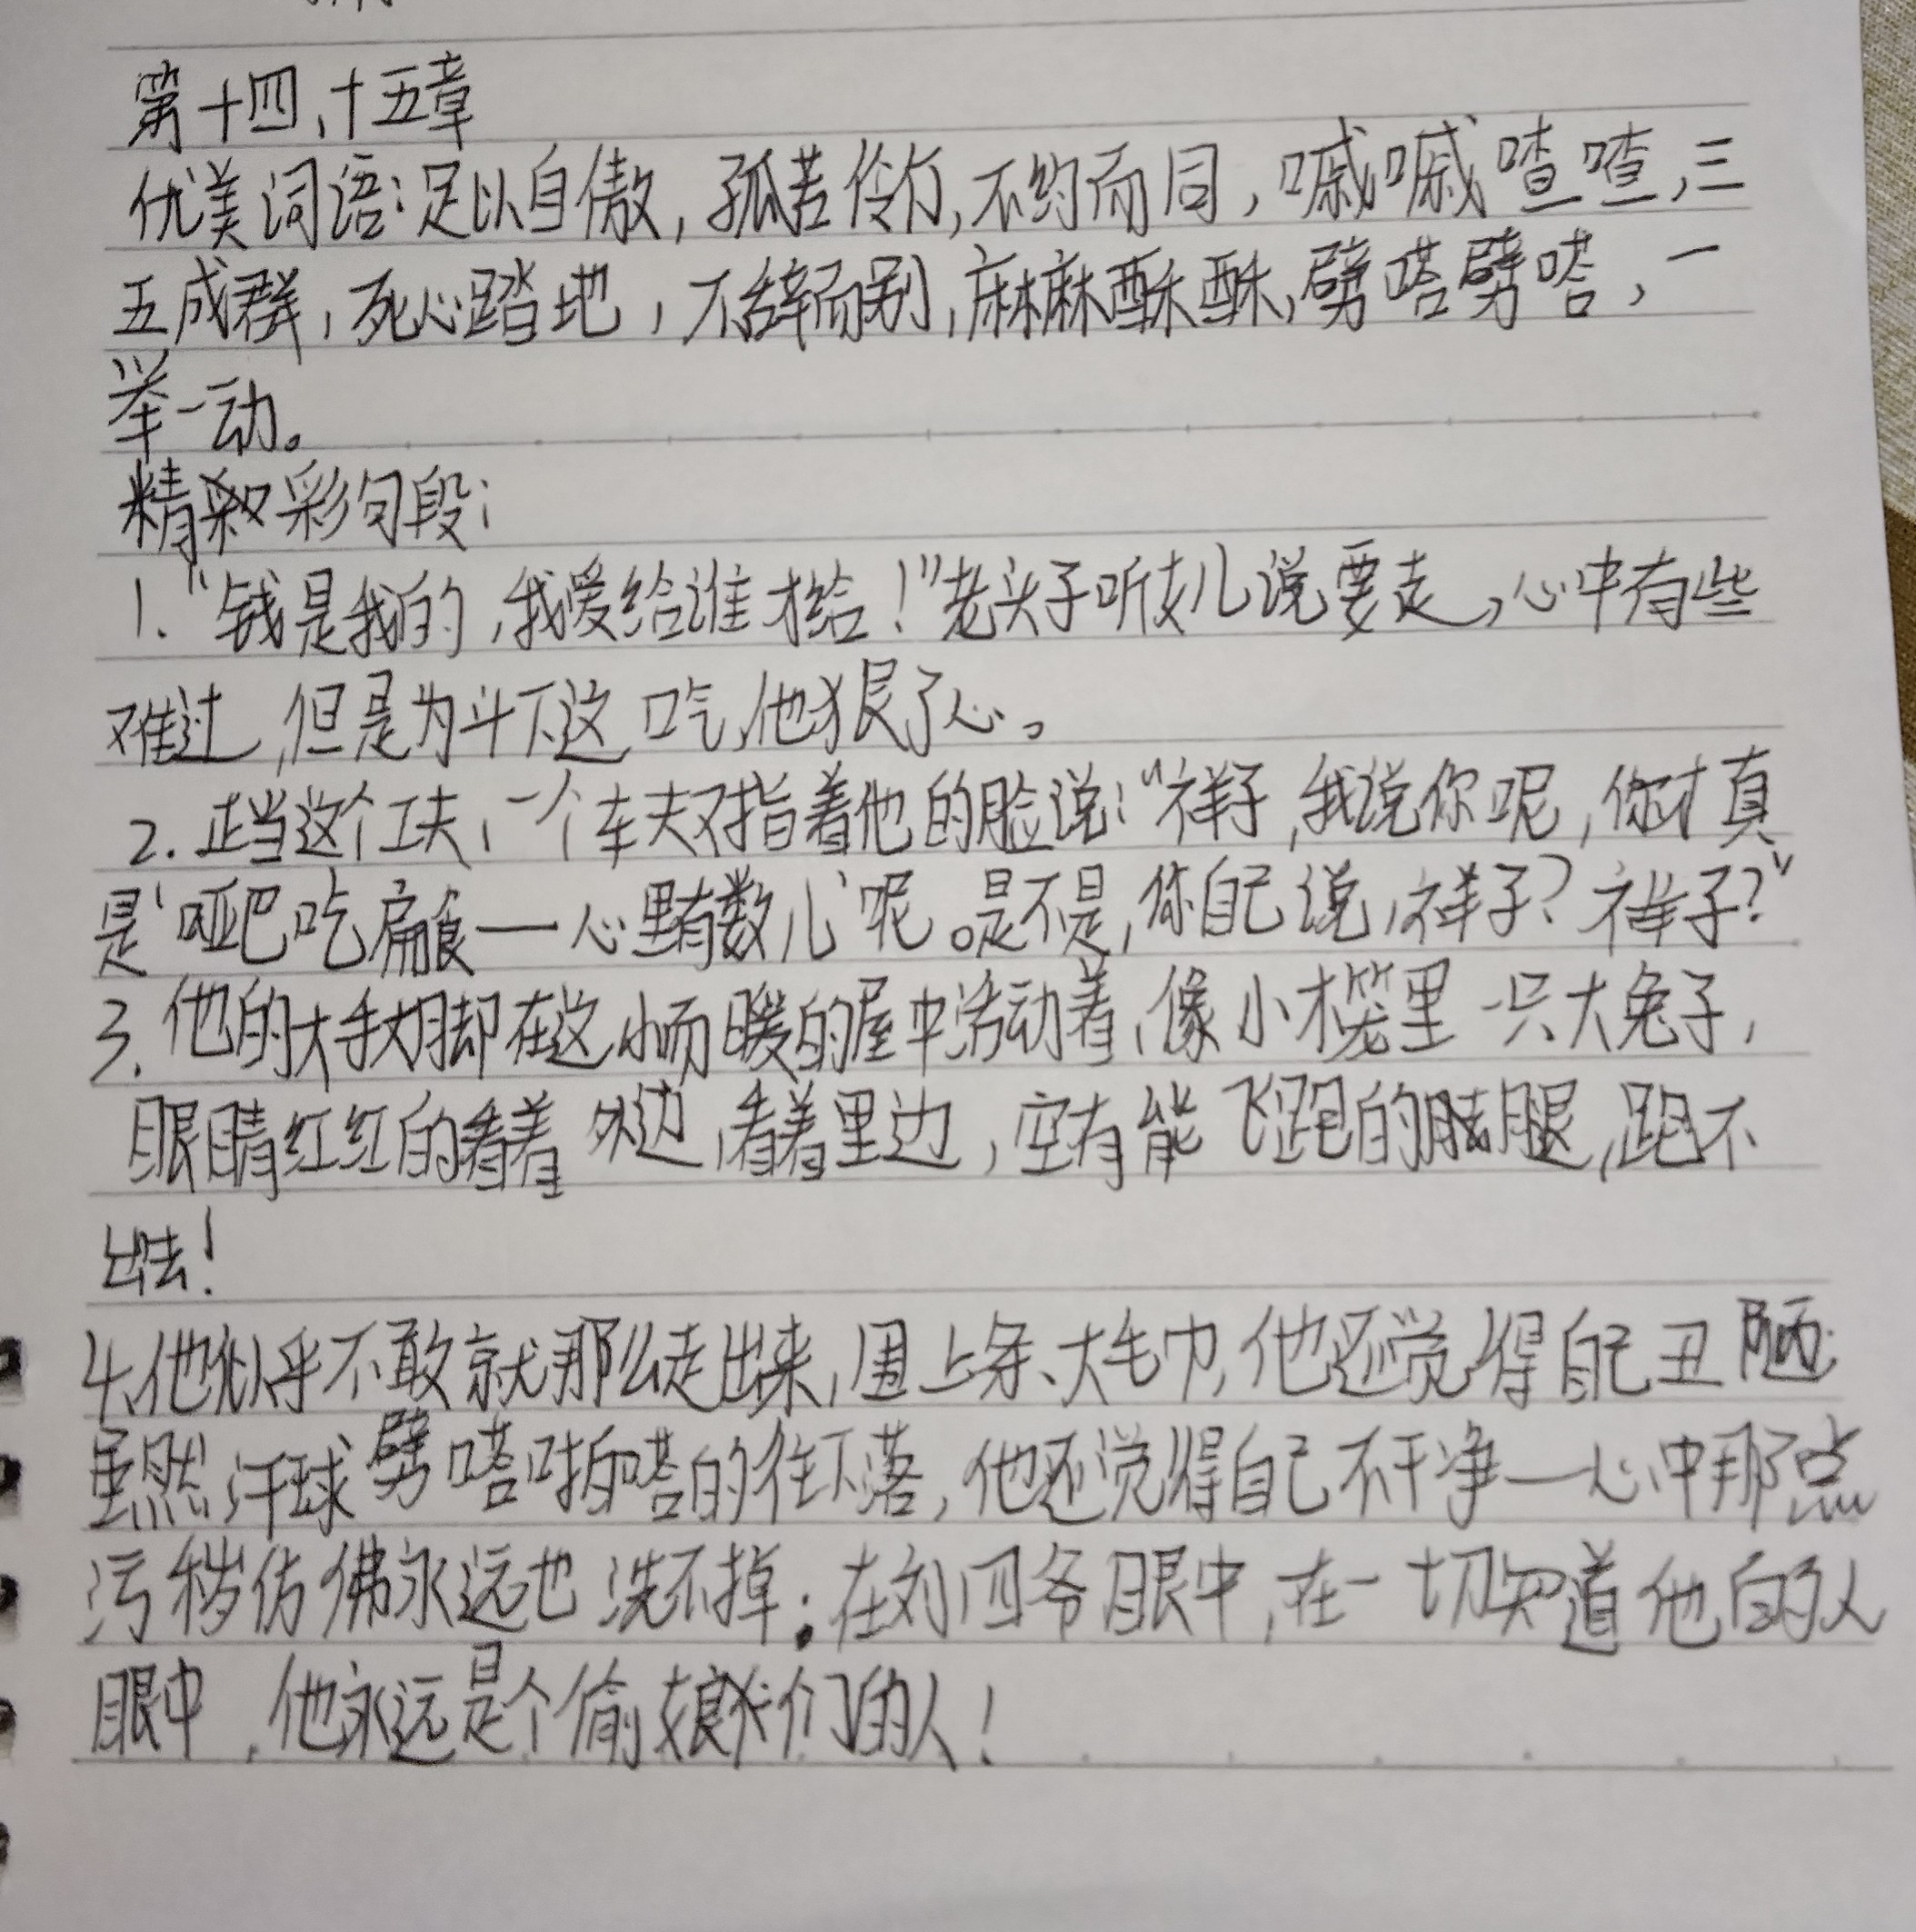 第十四、十五章
优美词语:足以自傲,孤苦伶仃,不约而同,嘁嘁喳喳,三
五成群,死心踏地,不辞而别,麻麻酥酥,劈嗒劈嗒,一
举一动。
精彩句段:
1.“钱是我的,我爱给谁才给!”老头子听女儿说要走,心中有些
难过,但是为斗下这口气,他狠了心。
2.正当这个工夫,一个车夫又指着他的脸说:“祥子,我说你呢,你才真
是‘哑巴吃扁食——心里有数儿’呢。是不是,你自己说,祥子?祥子?”
3.他的大手大脚却在这小而暖的屋中活动着,像小木笼里一只大兔子,
眼睛红红的看着外边,看着里边,空有能飞跑的腿,跑不
出去!
4.他似乎不敢就那么走出来,围上条大毛巾,他还觉得自己丑陋;
虽然汗球劈嗒啪嗒的往下落,他还觉得自己不干净——心中那点
污秽仿佛永远也洗不掉:在刘四爷眼中,在一切知道他的人
眼中,他永远是个偷娘们的人!